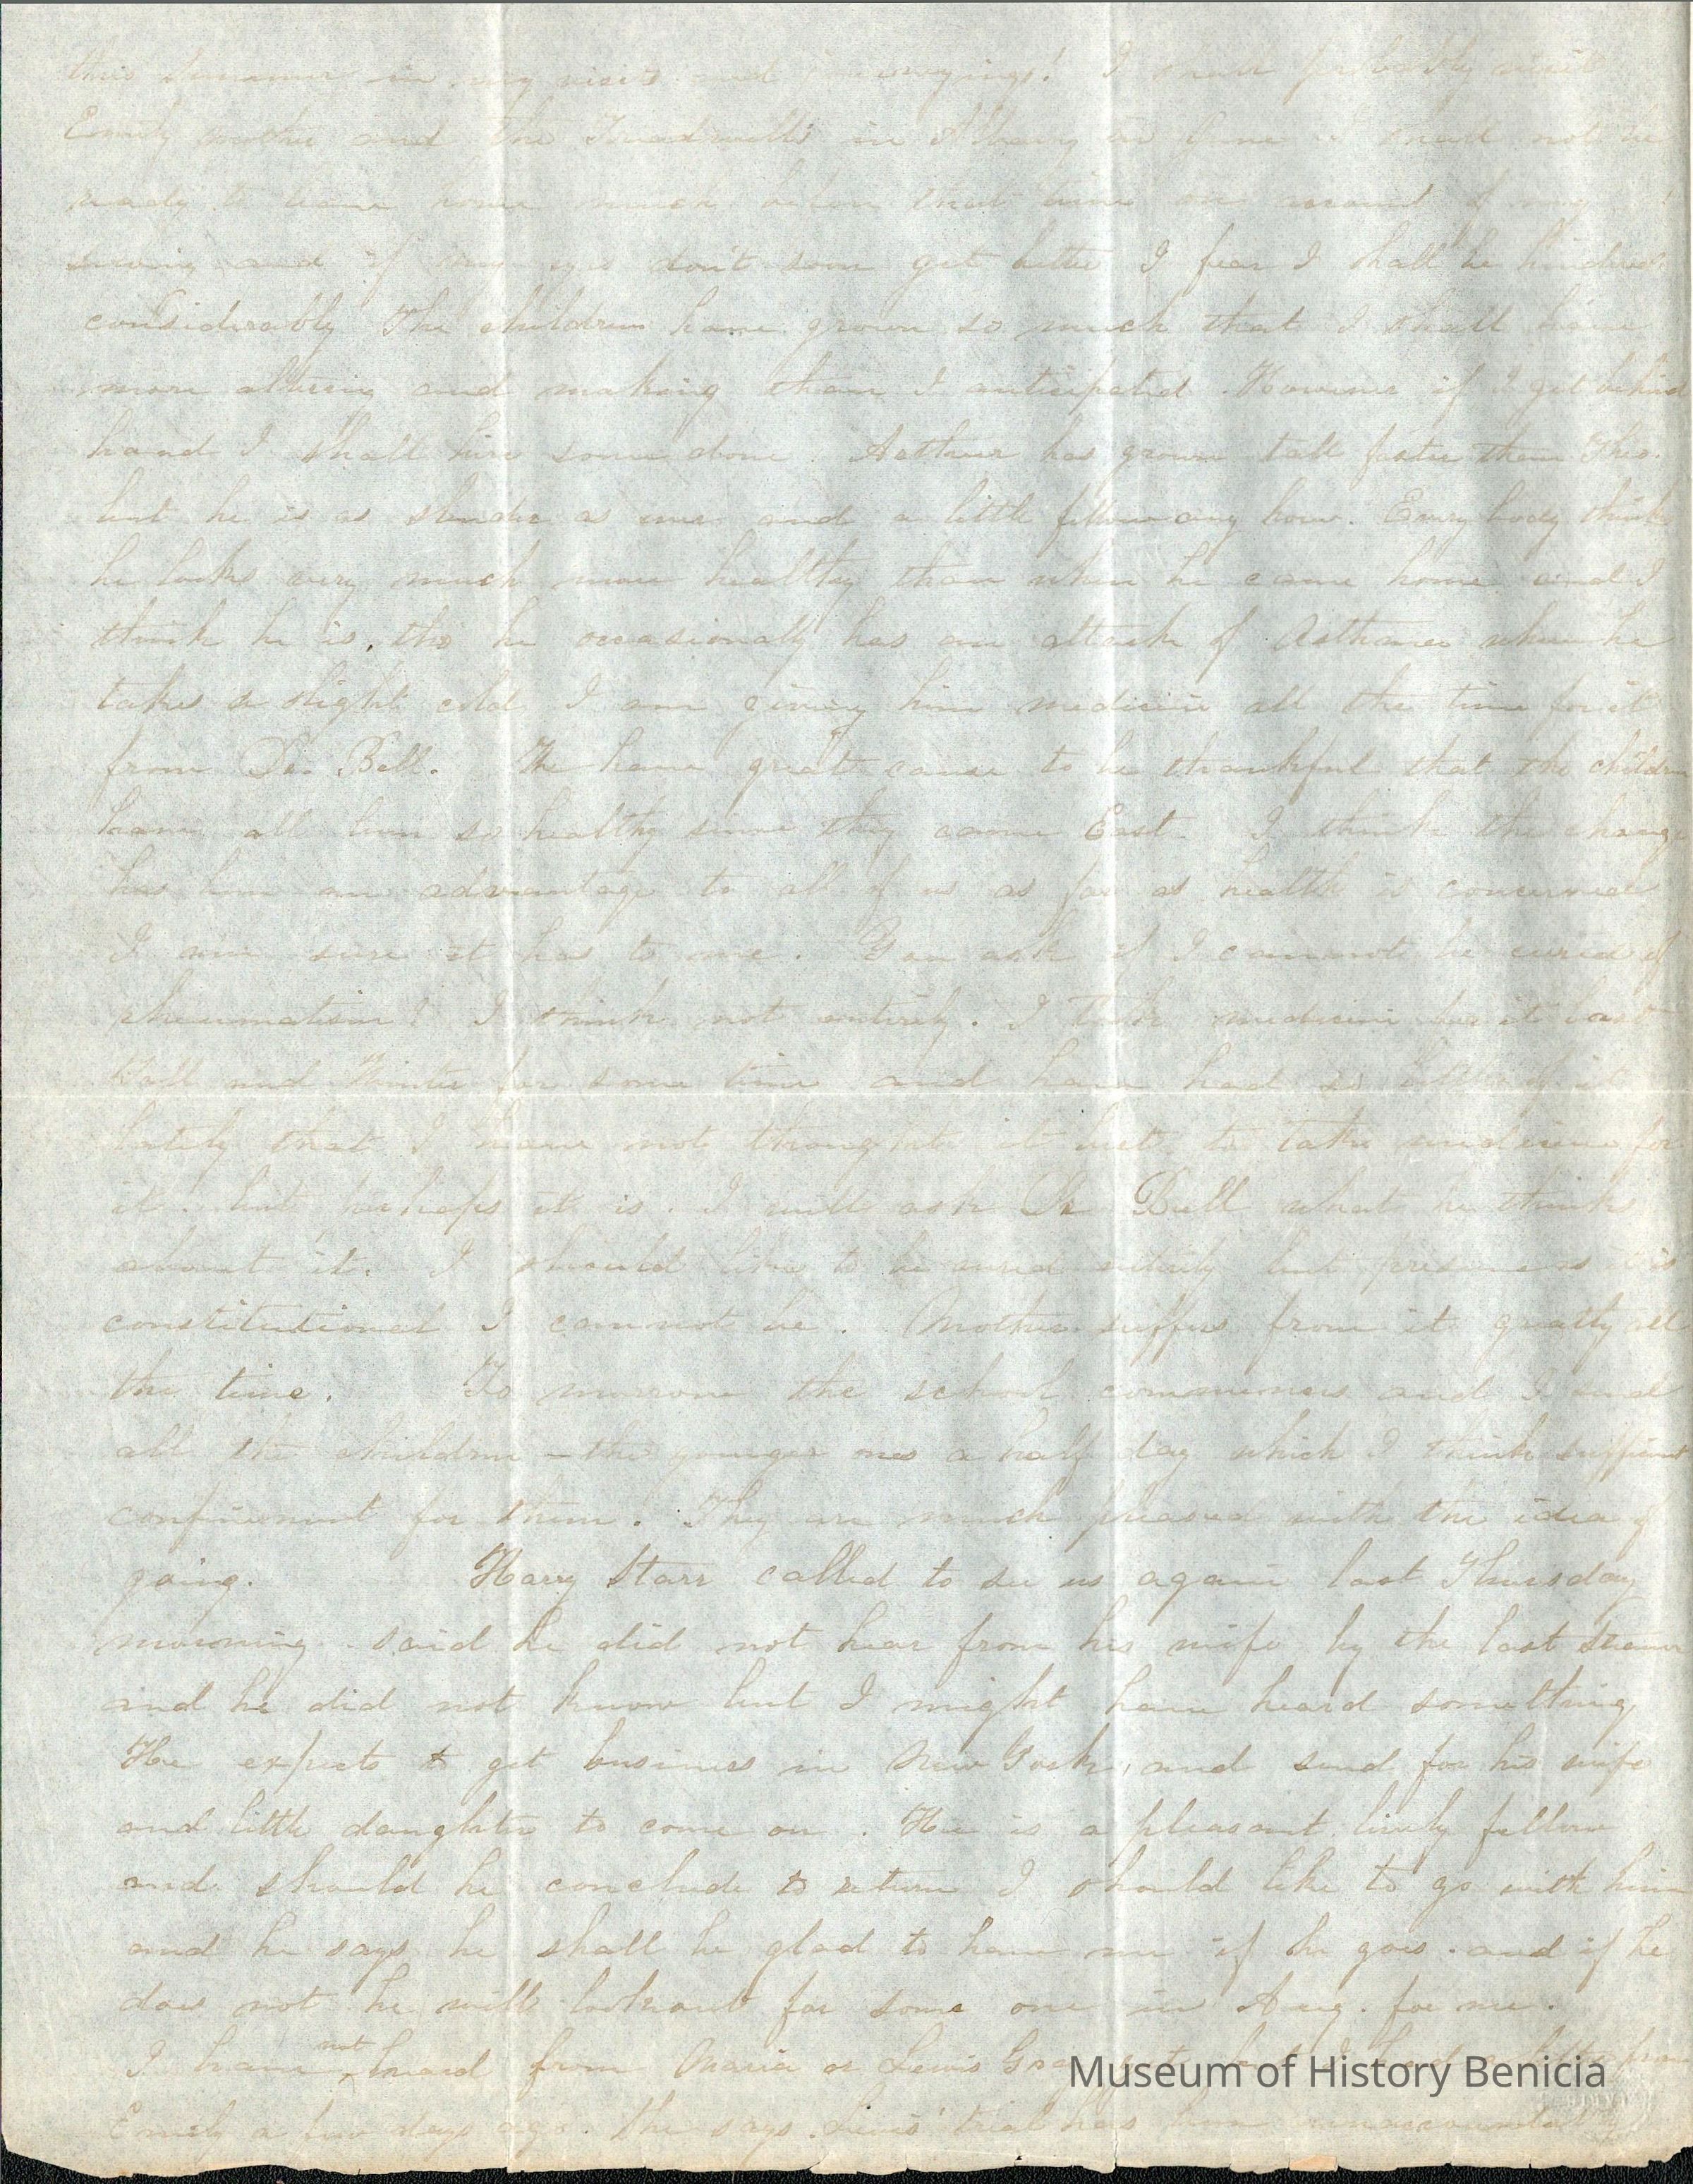 this Summer in my visits and journeyings! I shall probably visit
Emily mother and the Treadwells in Albany in June I shall not be
ready to leave home much before that time on account of my
sewing and if my eyes don't soon get better I fear I shall be hindered
considerably The children have grown so much that I shall have
more altering and making than I anticipated. However if I get behind
hand I shall hire some done. Arthur has grown tall faster than Theo.
but he is as slender as ever and a little boy. Every body think
he looks very much more healthy than when he came home and I
think he is, tho he occasionally has an attack of Asthma when he
takes a slight cold I am giving him medicine all the time for it
from Dr. Bell. We have great cause to be thankful that the children
have all been so healthy since they came East. I think the change
has been an advantage to all of us as far as health is concerned
I am sure it has to me. You ask if I cannot be cured of
rheumatism? I think not entirely. I took medicine for it last
Fall and Winter for some time and have had so little of it
lately that I have not thought it best to take medicine for
it. but perhaps it is. I will ask Dr Bell what he thinks
about it. I should like to be cured entirely but presume as it is
constitutional I cannot be. Mother suffers from it greatly all
the time. To morrow the school commences and I send
all the children - the younger ones a half day which I think sufficient
confinement for them. They are much pleased with the idea of
going. Harry Starr called to see us again last Thursday
morning. said he did not hear from his wife by the last Steamer
and he did not know but I might have heard something
He expects to get business in New York, and send for his wife
and little daughter to come on. He is a pleasant lively fellow
and should he conclude to return I should like to go with him
and he says he shall be glad to have me if he goes. and if he
does not he will lookout for some one in Aug. for me.
I have not heard from Maria or Lewis Gray from
Emily a few days ago. She says Lewis' trial has been
Museum of History Benicia